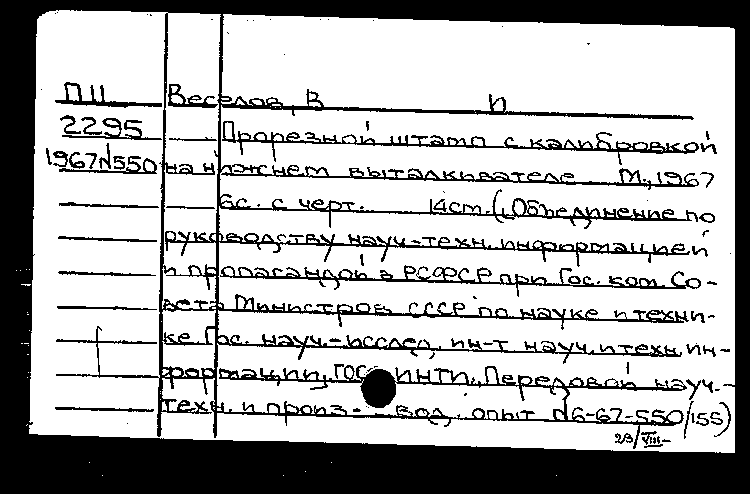 ПЦ Веселов, В П
2295 Прорезной штамп с калибровкой
1967№550 на нижнем выталкивателе М., 1967
6с. с черт. 14см. („Объединение по
руководству науч-техн. информацией
и пропагандой в РСФСР при Гос. ком. Со-
вета Министров СССР по науке и техни-
ке. Гос. науч.-исслед. ин-т науч. и техн. ин-
формации, ГОС ИНТИ„ Передовой науч.-
техн. и произ-вод. опыт №6-67-550/155)
23/VIII-